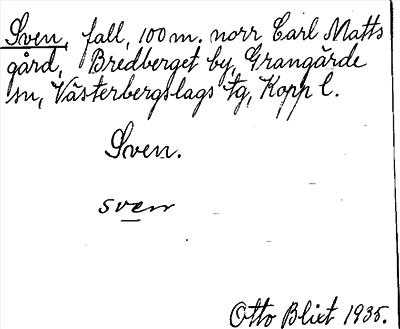 Sven, fall, 100 m. norr Carl Matts
gård, Bredberget by, Grangärde
sn, Västerbergslags tg, Kopp l.
Sven.
sven
Otto Blixt 1935.